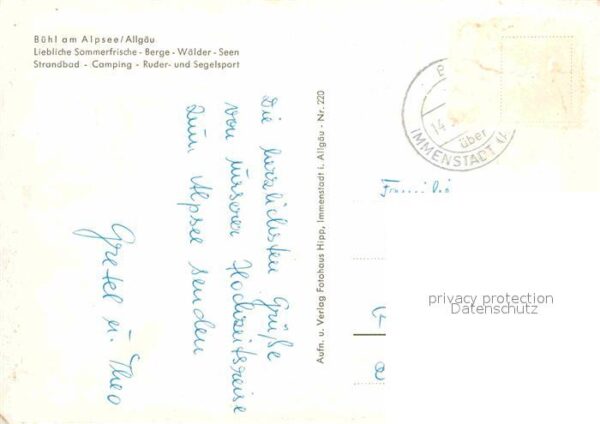 Bühl am Alpsee/Allgäu
Liebliche Sommerfrische - Berge - Wälder - Seen
Strandbad - Camping - Ruder- und Segelsport
Die herzlichsten Grüße
von unserer Hochzeitsreise
zum Alpsee senden
Gretel u. Theo
Aufn. u. Verlag Fotohaus Hipp, Immenstadt i. Allgäu - Nr. 220
14.
über
IMMENSTADT (A
Familie
privacy protection
Datenschutz